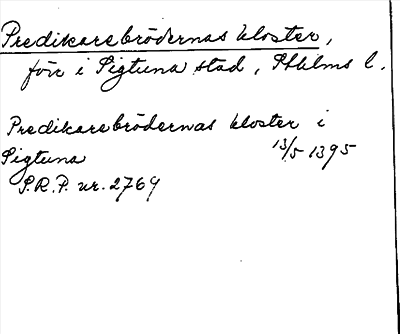 Predikarebrödernas kloster,
förr i Sigtuna stad, Sthlms l.
Predikarebrödernas kloster i
Sigtuna 13/5 1395
S.R.P. nr. 2769